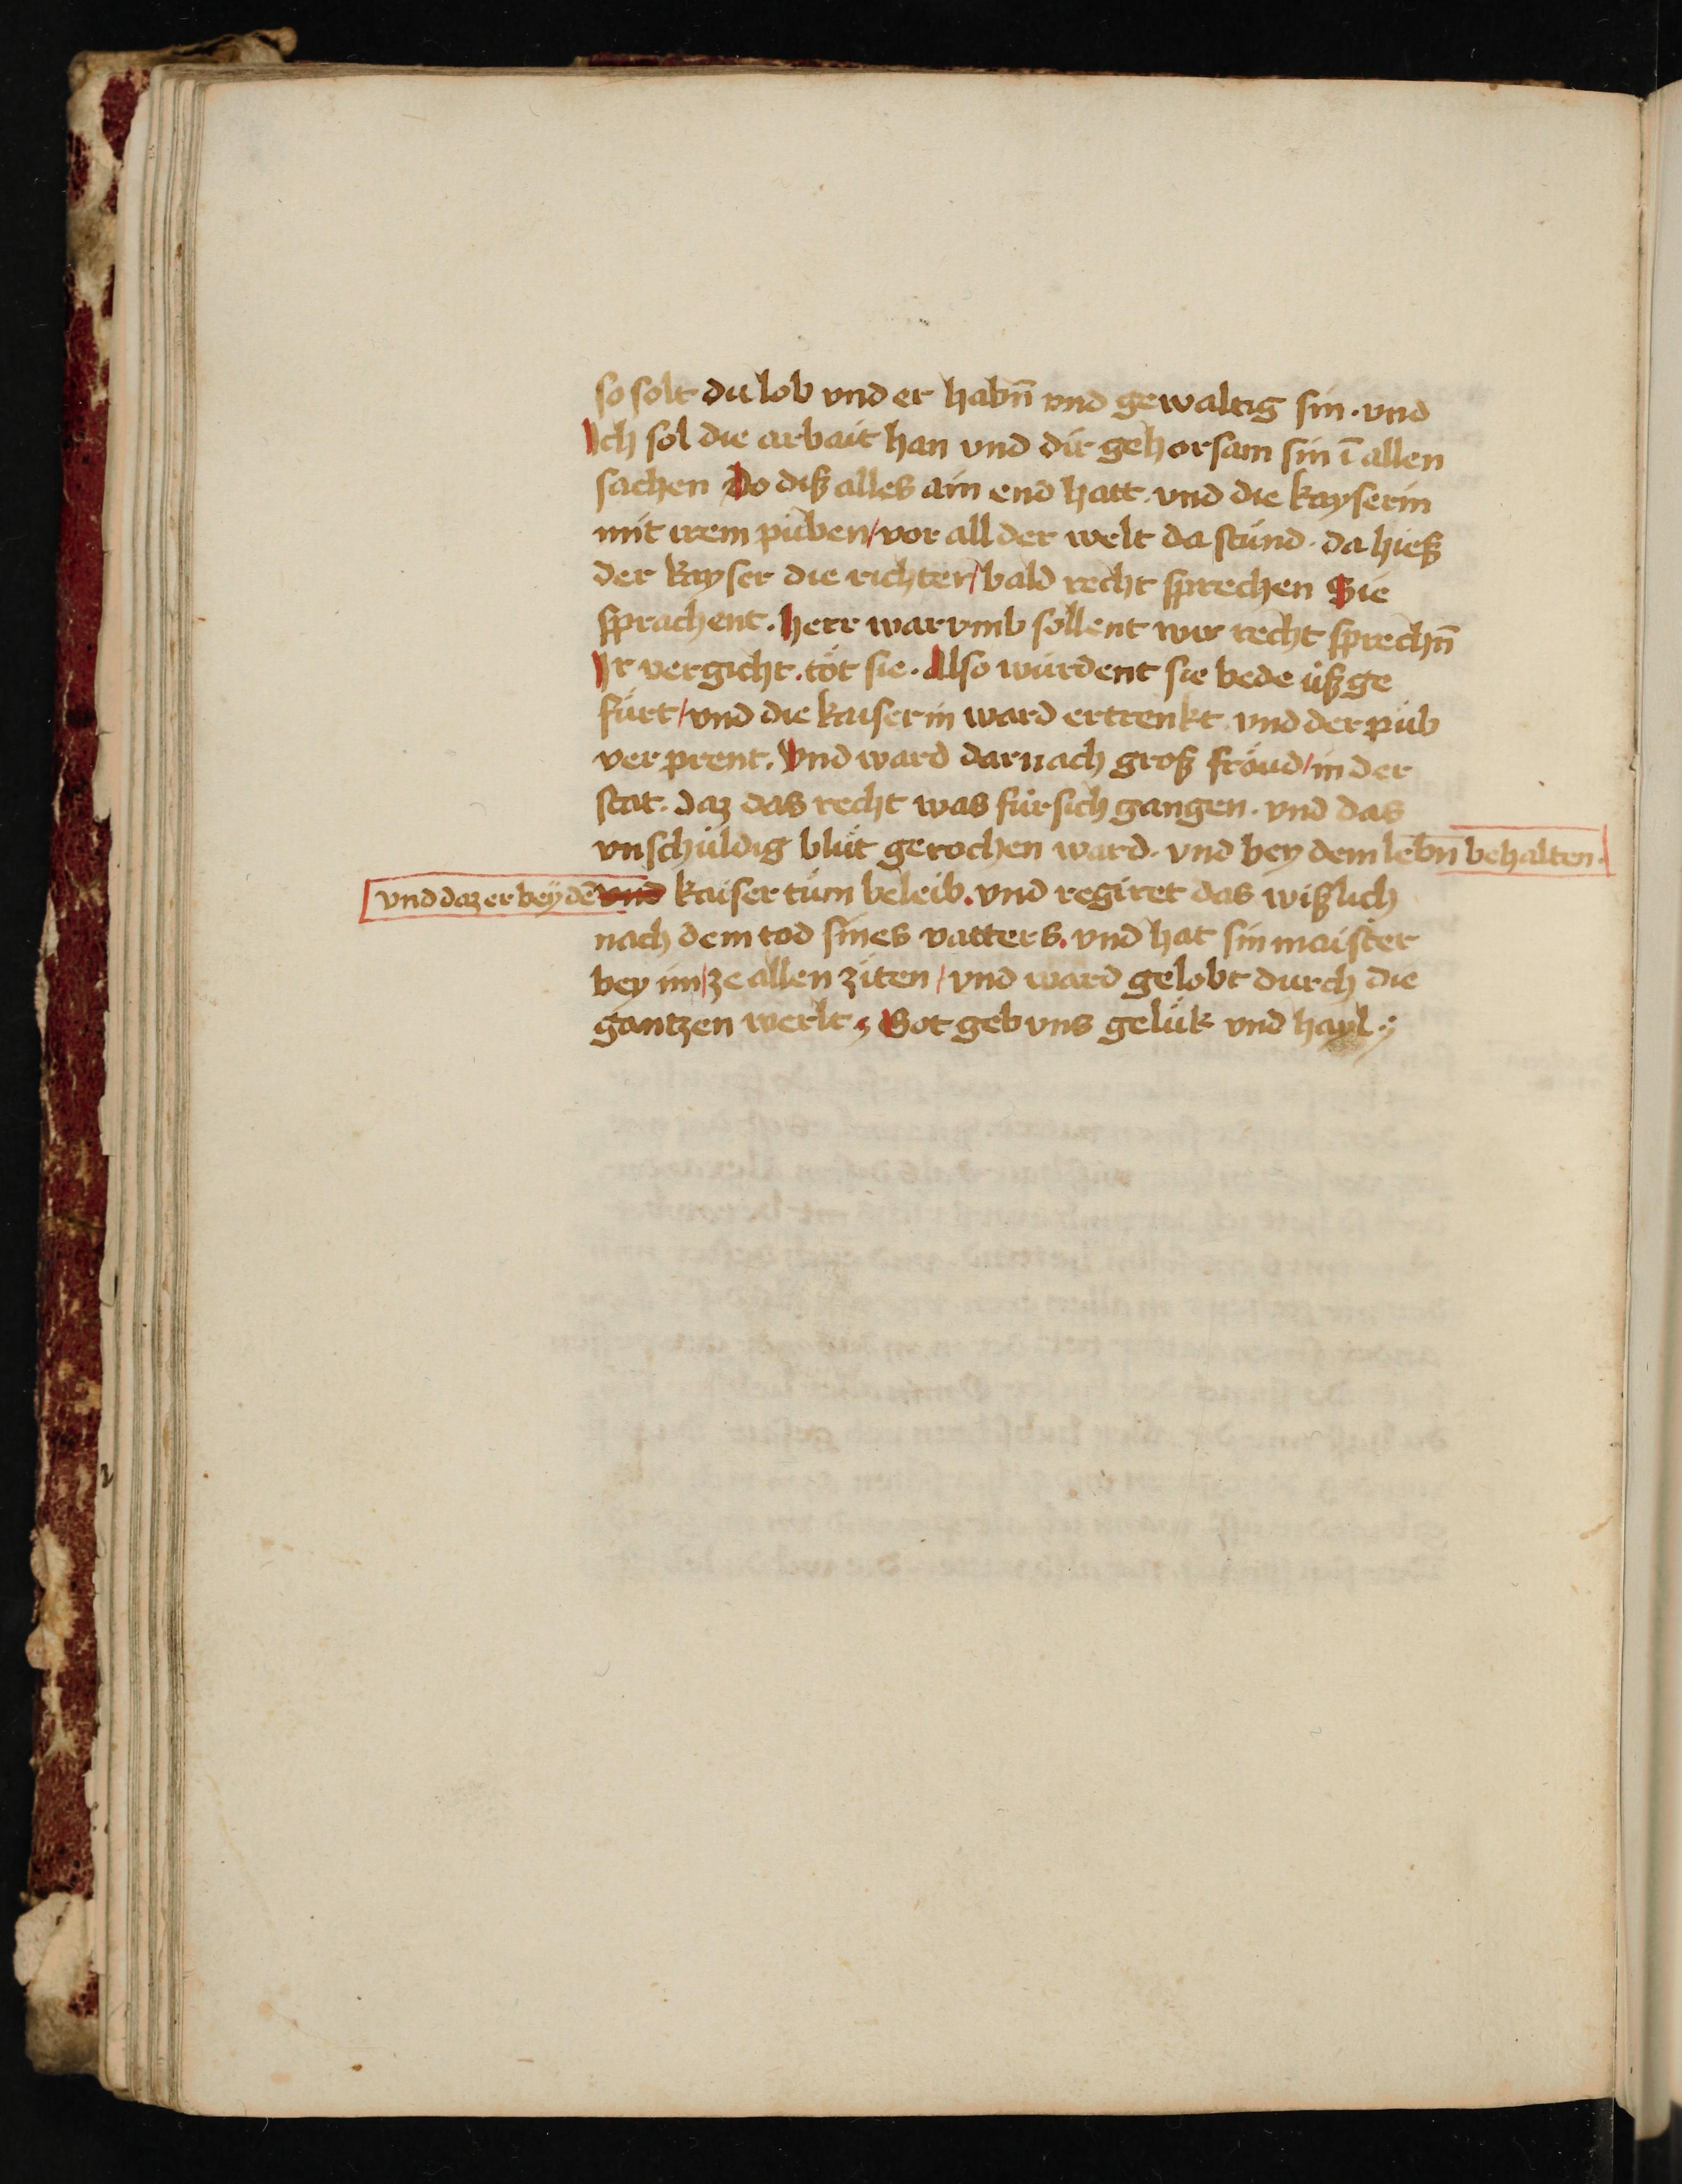 so solt du lob vnd er habn̄ vnd gewaltig sin · vnd
Ich sol die arbait han vnd dir gehorsam sin ī allen
sachen Do diß alles ain end hatt · vnd die kayserin
mit irem puͦben / vor all der welt da stuͦnd · da hieß
der kayser die richter / bald recht sprechen Sie
sprachent · herr warvmb söllent wir recht sprechn̄
Ir vergicht · töt sie · Also wurdent sie bede uß ge
fürt / vnd die kaiserin ward ertrenkt · vnd der puͦb
verprent · Vnd ward darnach groß fröud / in der
stat · daz das recht was für sich gangen · vnd das
vnschuldig bluͦt gerochen ward · vnd bey dem lebn̄ behalten ·
vnd daz er bey dē vnd kaisertum beleib · vnd regiret das wißlich
nach dem tod sines vatters · vnd hat sin maister
bey im / ze allen ziten / vnd ward gelobt durch die
gantzen werlt ; Got geb vns gelük vnd hayl ·;